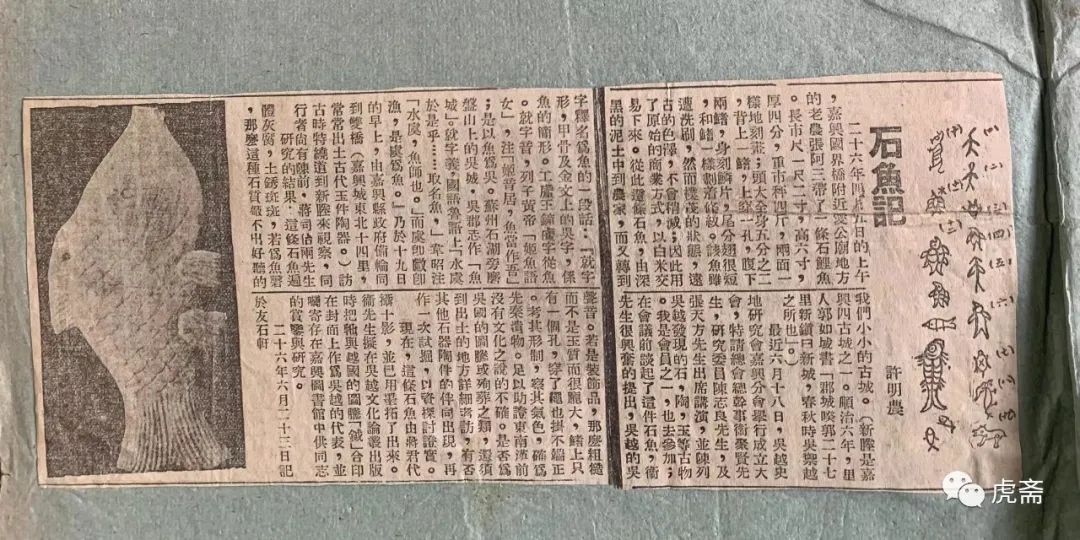 石魚記
許明農
二十六年四月五日的上午
，嘉興國界橋附近愛公廟地方
的老農張阿三帶了一條石鯉魚
。長市尺一尺二寸，高六寸，
厚四分，重市秤四斤，兩面一
樣地刻莊；頭大全身五分之二
，背上一鰭，上穿一孔，腹下
兩鰭，身刻鱗片，尾分翅很短
，和鰭一樣劃着花紋。該魚雖
遭洗刷，然而樸茂的狀態，遠
古的色澤，不會稍減；因此用
了原始的商業方式，以白米交
易下來。從此這條石魚，由深
黑的泥土中到農家，而又轉到
我們小小的古城。（新塍是嘉
興四古城之一。順治六年，里
人郭如城書「郡城唉郭二十七
里新鎮曰新城，春秋時吳禦越
之所也」。）
最近六月十八日，吳越史
地研究會嘉興分會舉行成立大
會，特請總會總幹事衞聚賢先
生，研究委員陳志良先生，及
張天方先生出席講演，並陳列
吳越發現的石，陶，玉等古物
。我是會員之一，也去參加；
在會議前談起了這件石魚，衞
先生很興奮的提出，吳越的吳
字釋名爲魚的一段話：「就字
形，甲骨及金文上的吳字，係
魚的簡形。工王鐘字從魚
。就字音，列子黃帝『姬魚語
女』，注『姬音居，魚當作吾』
；是以魚爲吳。蘇州石湖旁磨
盤山上的吳城，吳郡志作『魚
城』。就字義，國語魯語上『水虞
於是乎……取名魚』，韋昭注
『水虞，漁師也。』而虞卽卽
漁，是虞爲魚。」乃於十九日
的早上，由嘉興縣政府備輪同
到雙橋（嘉興城東北十四里，
常常出土古代玉件陶器。）訪
古時特繞道到新塍來視察，同
行者尚有陳前，蔣司佔兩先生
研究的結果，這條石魚遍
體灰腐，土銹斑斑，若爲魚磬
，那麼這種石質敲不出好聽的
聲音。若是裝飾品，那麼粗糙
而不是玉質而很龐大，鰭上只
有一個孔，穿了繩也掛不端正
。考其形制，察其氣色，確爲
先秦遺物。足以助證東南漢前
沒有文化之說的不確。是否爲
吳國的圖騰或殉葬之類，還須
到出土的地方詳細考訪，有否
其他石器陶件的伴同出現，再
作一次試掘，以資探討證實。
現在，這條石魚由蔣君代
攝十影，並已用墨拓了出來。
衞先生擬在吳越文化論叢出版
時把牠與越國的圖騰「鉞」合印
在封面上作爲吳越的代表，並
囑寄存在嘉興圖書館中供同志
的賞鑒與研究。
二十六年六月二十三日記
於友石軒
虎斋